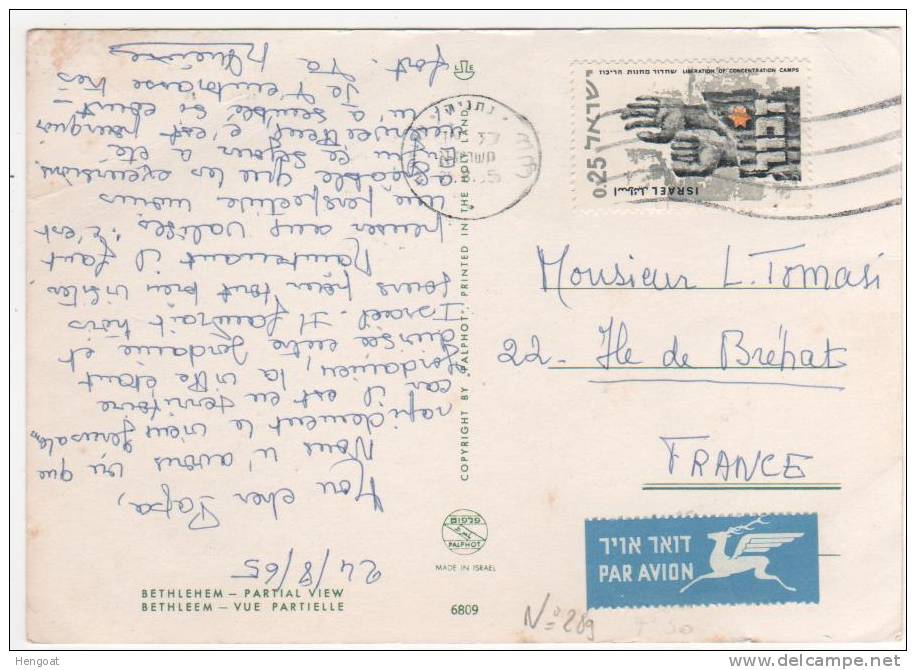 24/8/65
Mon cher Papa,
Nous n'avons vu que
rapidement le vieux Jerusalem
car il est en territoire
Jordanien, la ville étant
divisée entre Jordanie et
Israel. Il faudrait trois
jours pour tout bien visiter
Maintenant il faut
penser aux valises : c'est
une perspective moins
agréable que les excursions
ce séjour a été
c'est pourquoi
il m'a semblé si court
Je t'embrasse très
fort. Ta
BETHLEHEM – PARTIAL VIEW
BETHLEEM – VUE PARTIELLE
6809
COPYRIGHT BY "PALPHOT" PRINTED IN THE HOLY LAND
פלפוט
PALPHOT
MADE IN ISRAEL
שחרור מחנות הריכוז LIBERATION OF CONCENTRATION CAMPS
ישראל
0.25
ISRAEL اسرائيل
נתניה
Monsieur L. Tomasi
22 - Île de Bréhat
FRANCE
דואר אויר
PAR AVION
N° 289
Hengoat
www.delcampe.net